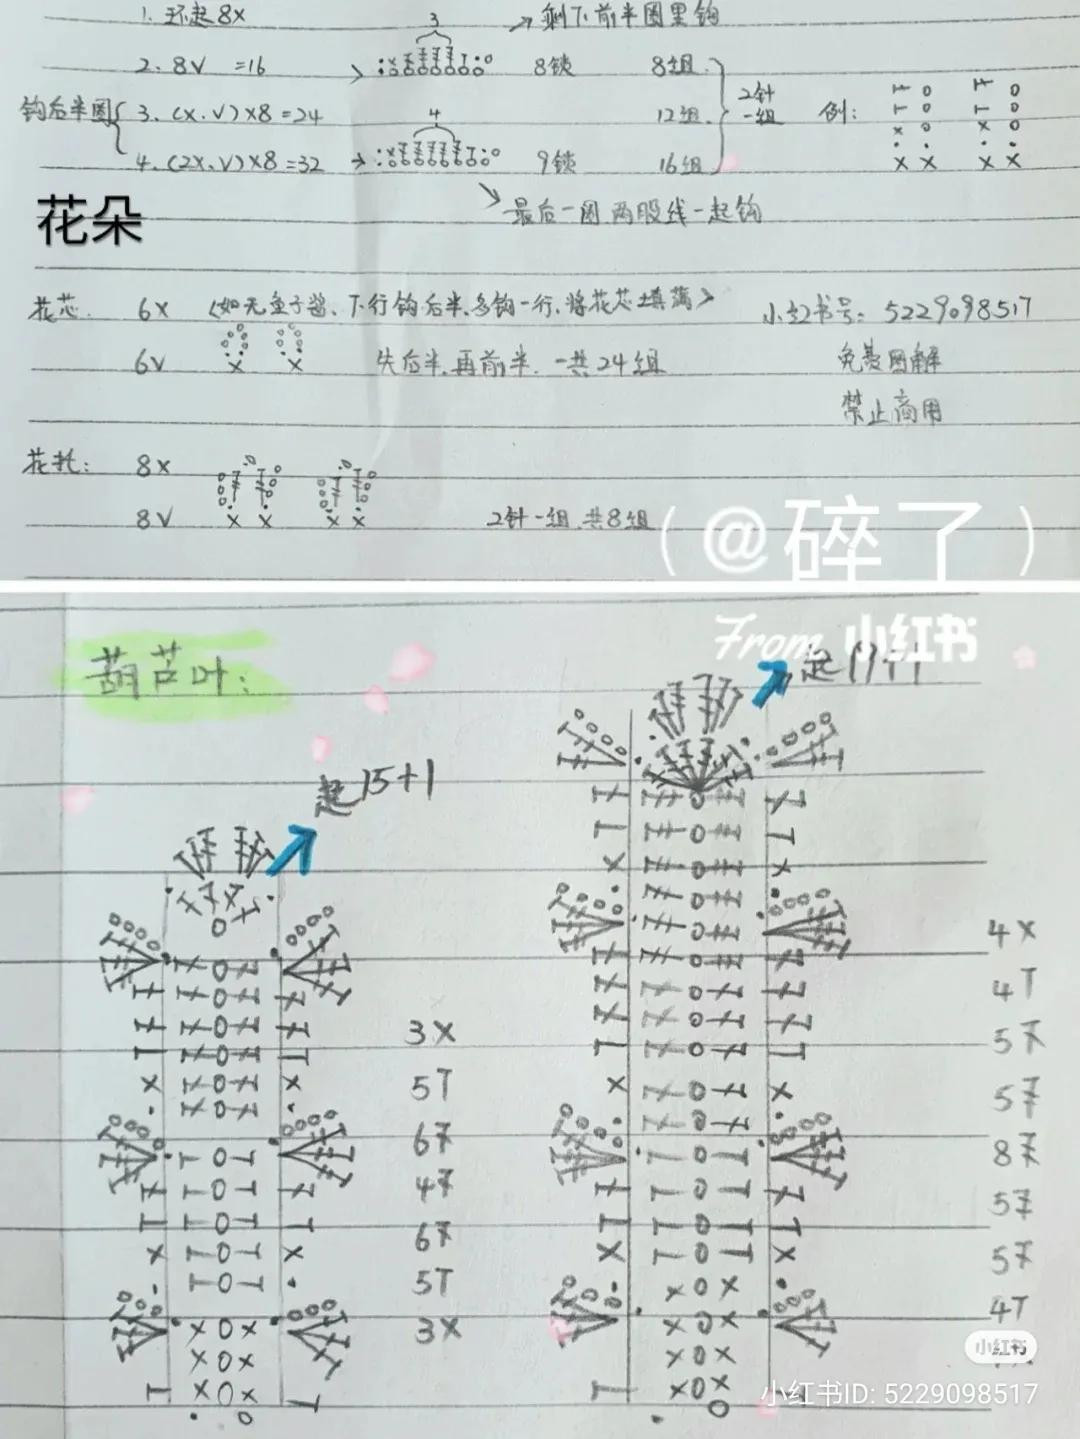 1. 环起 8X
3
剩下前半圈里钩
2. 8V =16
8锁
8组
钩后半圈
3. (X.V)X8=24
4
12组
2针
一组
例:
4. (2X.V)X8=32
9锁
16组
最后一圈两股线一起钩
花朵
花芯. 6X (如无鱼子酱、下行钩后半,多钩一行,将花芯填满)
小红书号: 5229098517
6V
先后半,再前半. 一共24组
免费图解
禁止商用
花托: 8X
8V
2针一组,共8组
(@碎了)
From 小红书
葫芦叶:
起19+1
起15+1
4X
4T
3X
5T
6
8
4
6
5T
4T
3X
小红书
小红书ID: 5229098517